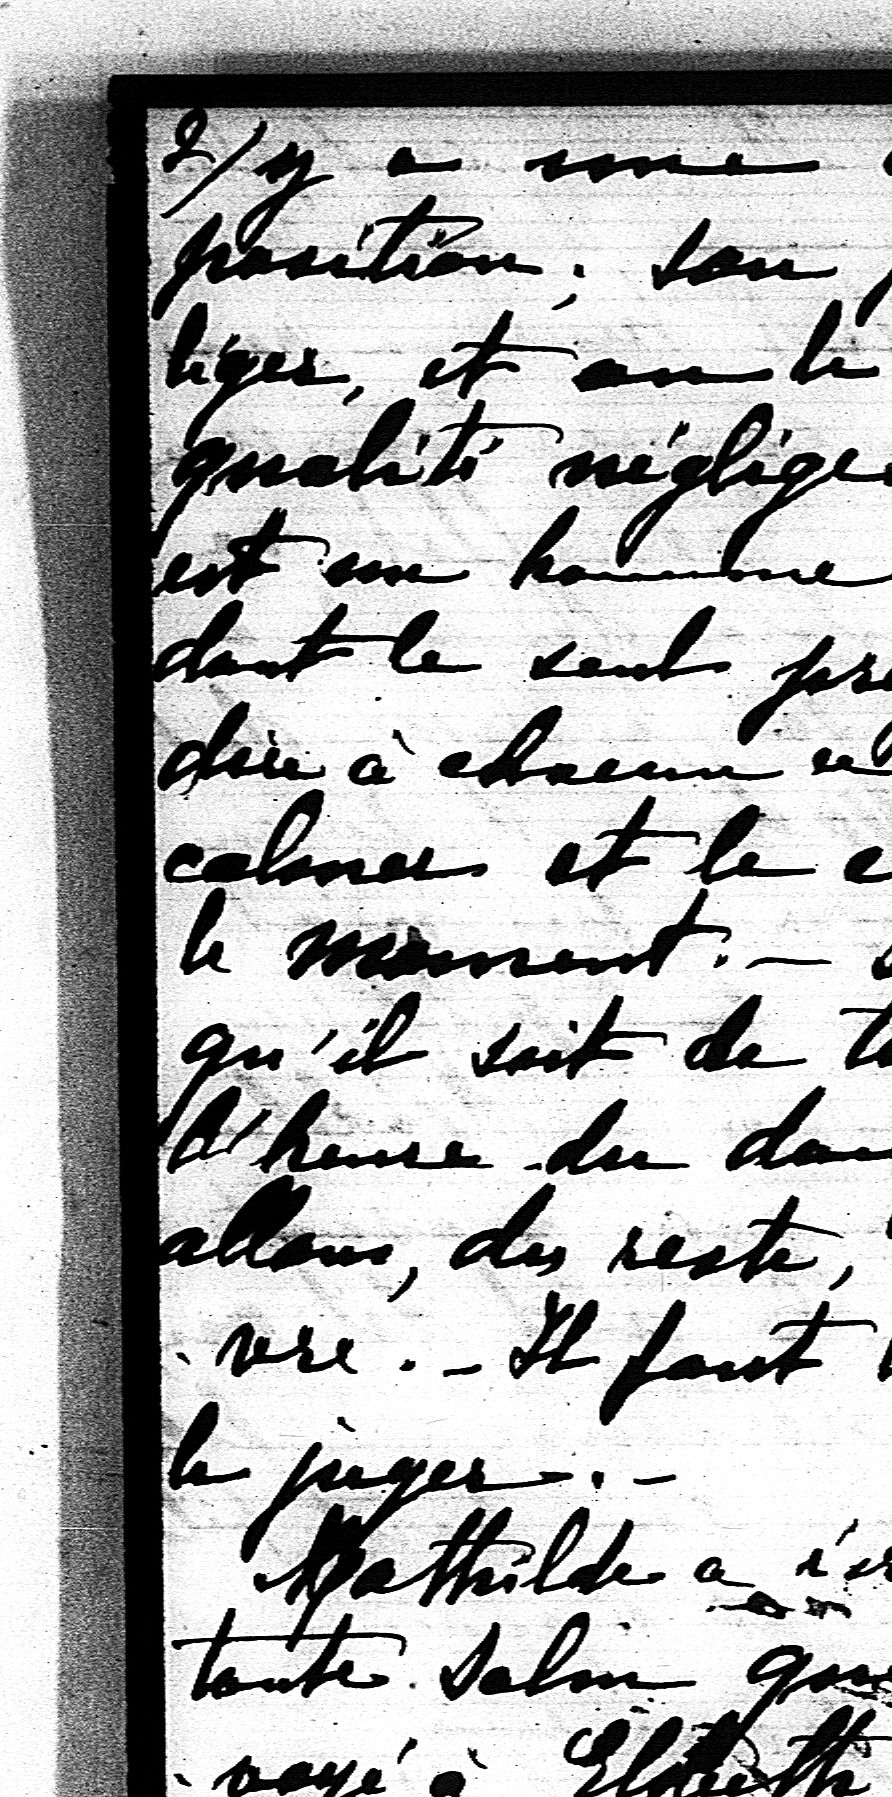 2/ y a une
position; son
léger, et on le
qualité néglige
est un homme
dont le seul pré
dire à chacun
calmer et le
le moment. —
qu'il soit de
l'heure du dou
allons, du reste,
vre. — Il faut
le juger. —
Mathilde a
tante Salm que
voyé à